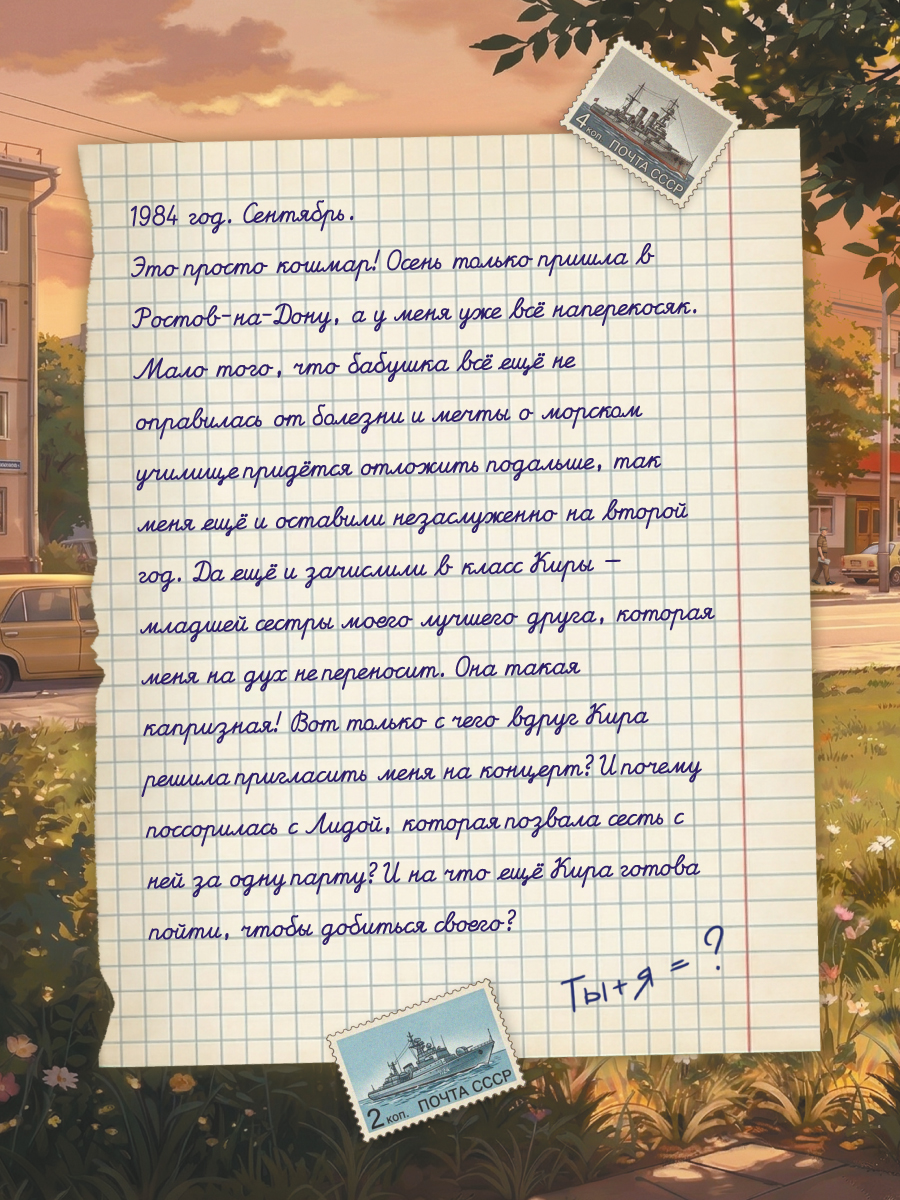 4 коп. ПОЧТА СССР
1984 год. Сентябрь.
Это просто кошмар! Осень только пришла в
Ростов-на-Дону, а у меня уже всё наперекосяк.
Мало того, что бабушка всё ещё не
оправилась от болезни и мечты о морском
училище придётся отложить подальше, так
меня ещё и оставили незаслуженно на второй
год. Да ещё и зачислили в класс Киры –
младшей сестры моего лучшего друга, которая
меня на дух не переносит. Она такая
капризная! Вот только с чего вдруг Кира
решила пригласить меня на концерт? И почему
поссорилась с Лидой, которая позвала сесть с
ней за одну парту? И на что ещё Кира готова
пойти, чтобы добиться своего?
Ты+я = ?
2 коп. ПОЧТА СССР